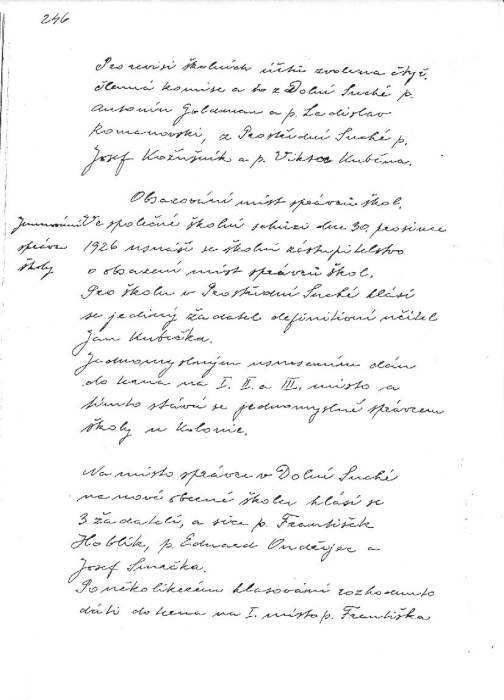 246
Pro revisi školních účtů zvolena čtyř.
členná komise a to z Dolní Suché p.
Antonín Goldman a p. Ladislav
Romanovski, z Prostřední Suché p.
Josef Kožušník a p. Viktor Kuběna.
Obsazování míst správců škol.
Jmenování
správce
školy
Ve společné školní schůzi dne 30. prosince
1926 usnáší se školní zástupitelstvo
o obsazení míst správců škol.
Pro školu v Prostřední Suché hlásí
se jediný žadatel definitivní učitel
Jan Kubička.
Jednomyslným usnesením dán
do terna na I. II. a III. místo a
tímto stává se jednomyslně správcem
školy u Kolonie.
Na místo správce v Dolní Suché
na nové obecné škole hlásí se
3 žadatelé, a sice p. František
Hoblík, p. Eduard Ondřejec a
Josef Smečka.
Po několikerém hlasování rozhodnuto
dáti do terna na I. místo p. Františka